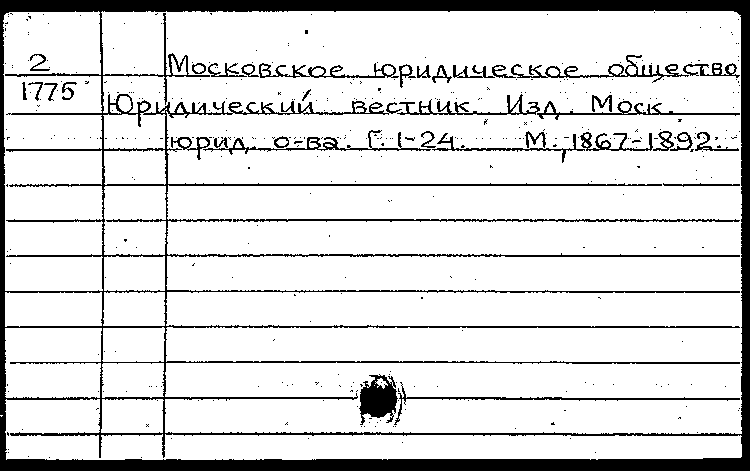 2
1775
Московское юридическое общество
Юридический вестник. Изд. Моск.
юрид. о-ва. Г. 1-24. М., 1867-1892.